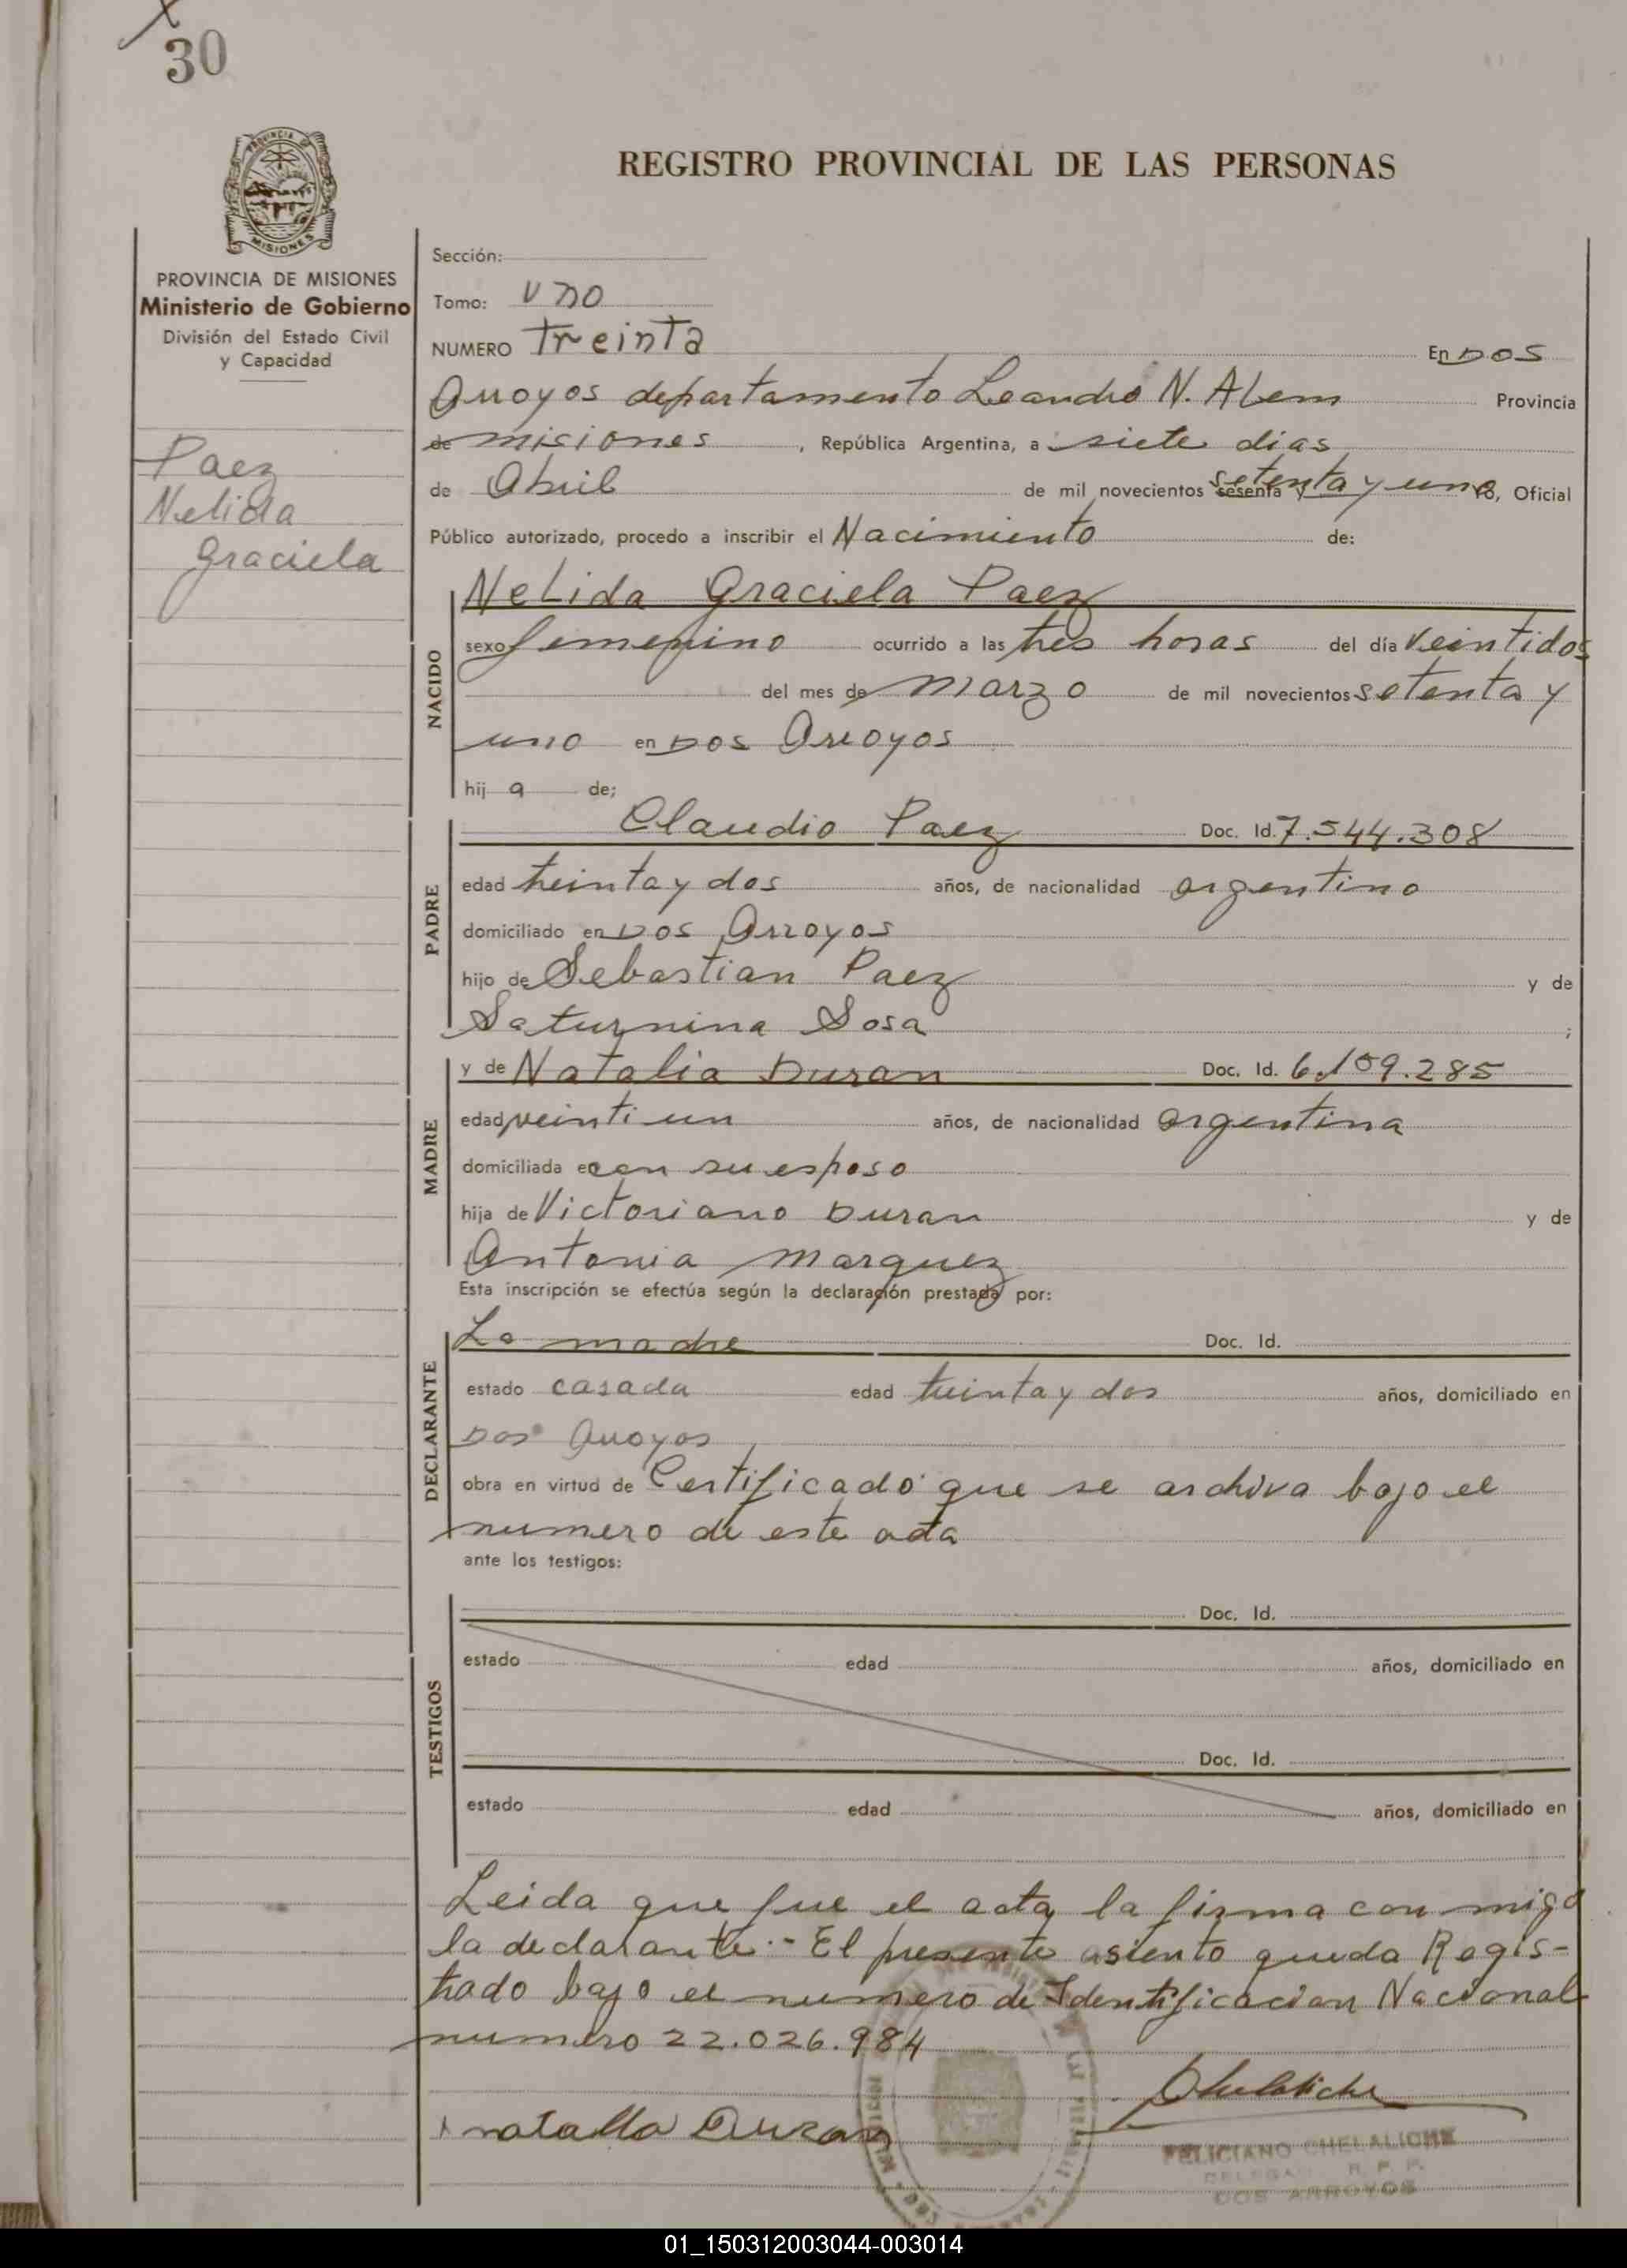 30
REGISTRO PROVINCIAL DE LAS PERSONAS
PROVINCIA DE
MISIONES
PROVINCIA DE MISIONES
Ministerio de Gobierno
División del Estado Civil
y Capacidad
Paez
Nelida
Graciela
Sección:
Tomo: uno
NUMERO Treinta En Dos
Arroyos departamento Leandro N. Alem Provincia
de misiones, República Argentina, a siete dias
de Abril de mil novecientos sesenta y setenta y uno, Oficial
Público autorizado, procedo a inscribir el Nacimiento de:
NACIDO
Nelida Graciela Paez
sexo femenino ocurrido a las tres horas del día veintidos
del mes de marzo de mil novecientos setenta y
uno en Dos Arroyos
hij a de;
PADRE
Claudio Paez Doc. Id. 7.544.308
edad treinta y dos años, de nacionalidad argentino
domiciliado en Dos Arroyos
hijo de Sebastian Paez y de
Saturnina Sosa ;
MADRE
y de Natalia Duran Doc. Id. 6.109.285
edad veinti un años, de nacionalidad argentina
domiciliada en con su esposo
hija de Victoriano Duran y de
Antonia Marquez
Esta inscripción se efectúa según la declaración prestada por:
DECLARANTE
La madre Doc. Id.
estado casada edad treinta y dos años, domiciliado en
Dos Arroyos
obra en virtud de Certificado que se archiva bajo el
numero de este acta
ante los testigos:
TESTIGOS
Doc. Id.
estado edad años, domiciliado en
Doc. Id.
estado edad años, domiciliado en
Leida que fue el acta la firma con migo
la declarante.- El presente asiento queda Regis-
trado bajo el numero de Identificacion Nacional
numero 22.026.984
Chelaliche
natalia Duran
FELICIANO CHELALICHE
R. P. P.
DOS ARROYOS
01_150312003044-003014